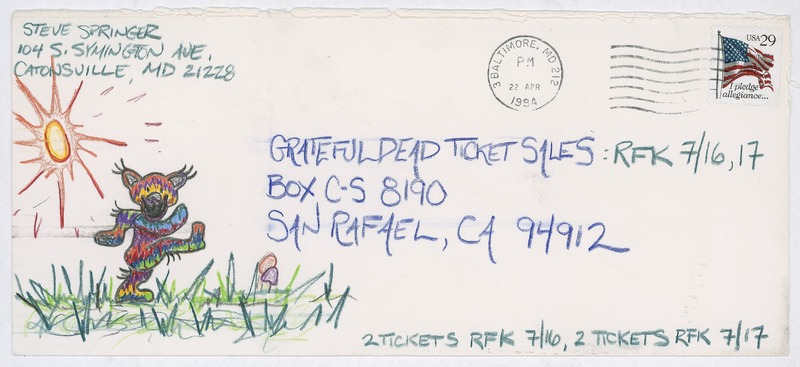 STEVE SPRINGER
104 S. SYMINGTON AVE,
CATONSVILLE, MD 21228
3 BALTIMORE, MD 212
PM
22 APR
1994
USA 29
I pledge
allegiance...
GRATEFUL DEAD TICKET SALES: RFK 7/16, 17
BOX C-S 8190
SAN RAFAEL, CA 94912
2 TICKETS RFK 7/16, 2 TICKETS RFK 7/17